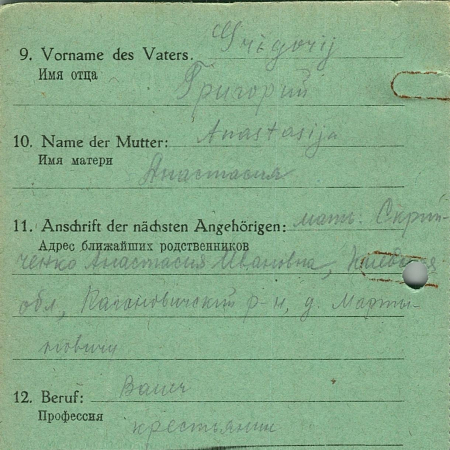 9. Vorname des Vaters. Grigorij
Имя отца
Григорий
10. Name der Mutter: Anastasija
Имя матери
Анастасия
11. Anschrift der nächsten Angehörigen: мать: Скрип-
Адрес ближайших родственников
ченко Анастасия Ивановна, Киевская
обл, Кагановичский р-н, д. Марты-
новичи
12. Beruf: Bauer
Профессия
крестьянин